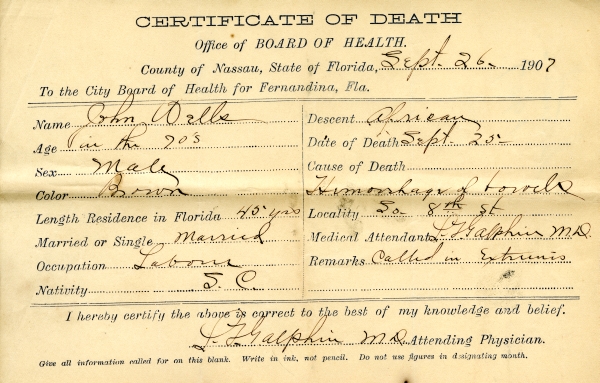 CERTIFICATE OF DEATH
Office of BOARD OF HEALTH.
County of Nassau, State of Florida, Sept. 26 1907
To the City Board of Health for Fernandina, Fla.
Name John Wells
Age in the 70's
Sex Male
Color Brown
Length Residence in Florida 45 yrs
Married or Single Married
Occupation Labour
Nativity S. C.
Descent African
Date of Death Sept. 25
Cause of Death
Hemorrhage of bowels
Locality So 8th St
Medical Attendant J. F. Galphin M.D.
Remarks Called in Extremis
I hereby certify the above is correct to the best of my knowledge and belief.
Galphin M.D. Attending Physician.
Give all information called for on this blank. Write in ink, not pencil. Do not use figures in designating month.